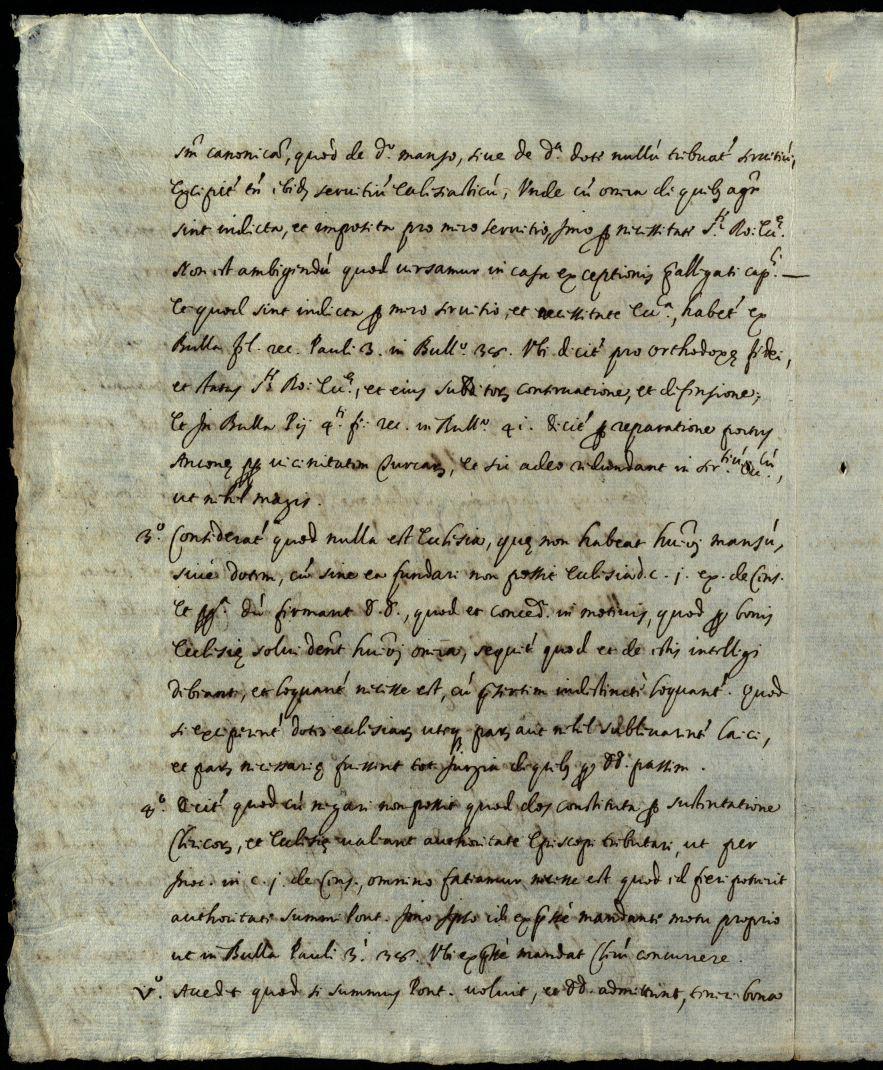 sm canonicā, quod de d.º manso, siue de d.ª dote nullū tribuat' seruitiū,
Excipit' tn̄ ibidē seruitiū Ecclesiasticū, Vnde cū onera de quibʒ agr̄
sint indicta, et imposita pro mero seruitio, Imo ꝑ necessitate S.tę Ro: Ecc.ę
Non est ambigendū quod uersamur in casu exceptionis p̄allegati cap.li —
Et quod sint indicta ꝑ mero seruitio, et necessitate Ecc.ę, habet' ex
Bulla fęl. rec. Pauli 3. in Bull.º 38. Vbi dicit' pro orthodoxę fidei,
et status S.tę Ro: Ecc.ę, et eius subditoꝝ conseruatione, et defensione;
Et In Bulla Pij 4.ti fę: rec. in Bull.º 41. dicit' ꝑ reparatione portus
Anconę ꝓꝑ uicinitatem Turcaꝝ, Et sic adeo redundant in ser.tiū Ecc.ū,
ut nihil magis.
3.º Considerat' quod nulla est Ecclesia, quę non habeat huiꝰōi mansū,
siue dotem, cū sine ea fundari non possit Ecclesia d. c. j. ex. de Cens.
Et dū firmant D.D., quod et conced. in motiuis, quod bonis
Ecclesię solui debent huiꝰōi onera, sequit' quod et de istis intelligi
debeant, et loquant' necesse est, cū p̄sertim indistincte loquant'. Quod
si exciperent' dotes ecclesiaꝝ utiqʒ parū aut nihil subleuarent' laici,
et parū necessarię fuissent tot Iurgia de quibʒ ꝑ DD. passim.
4.º Dicit' quod cū negari non possit quod dos constituta ꝑ sustentatione
Clericoꝝ, et Ecclesię ualeant authoritate Episcopi tributari, ut per
Inoc. in c. j. de Cens., omnino fateamur necesse est quod id fieri poterit
authoritate Summi Pont. Imo Ipso id exp̄sse mandante motu proprio
ut in Bulla Pauli 3.i 38. Vbi exp̄sse mandat Clerū concurrere.
V.º Accedit quod si summus Pont. uoluit, et DD. admittunt, teneri bona